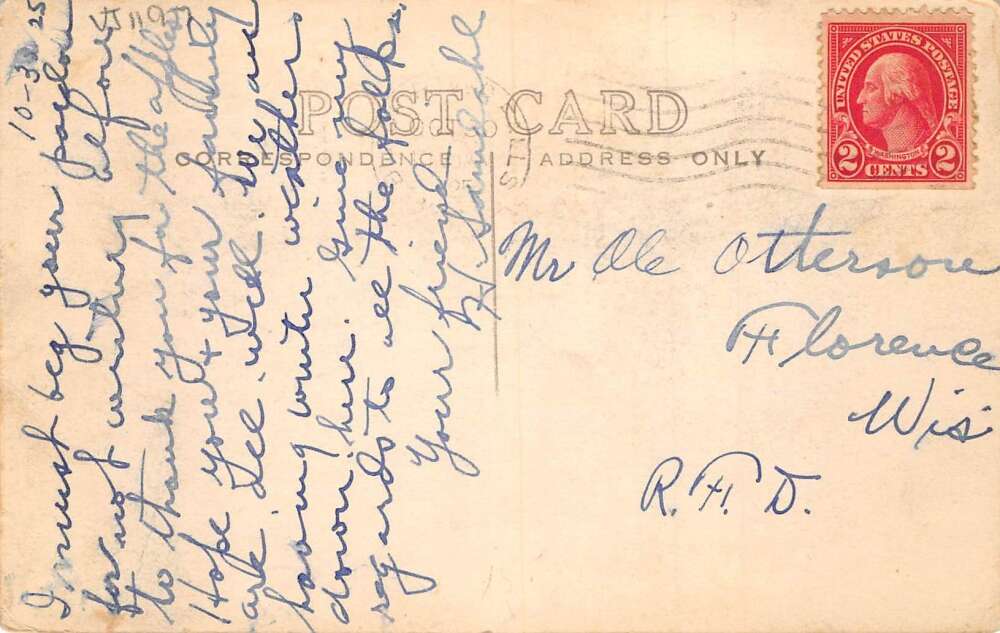 10-30 25
I must beg your pardon
for not writing before
to thank you for the apples
Hope you & your family
are all well. We are
having winter weather
down here. Give my
regards to all the folks.
Your friend
POST CARD
CORRESPONDENCE
ADDRESS ONLY
UNITED STATES POSTAGE
WASHINGTON
2 CENTS 2
Mr Ole Otterson
Florence
Wis
R.F.D.